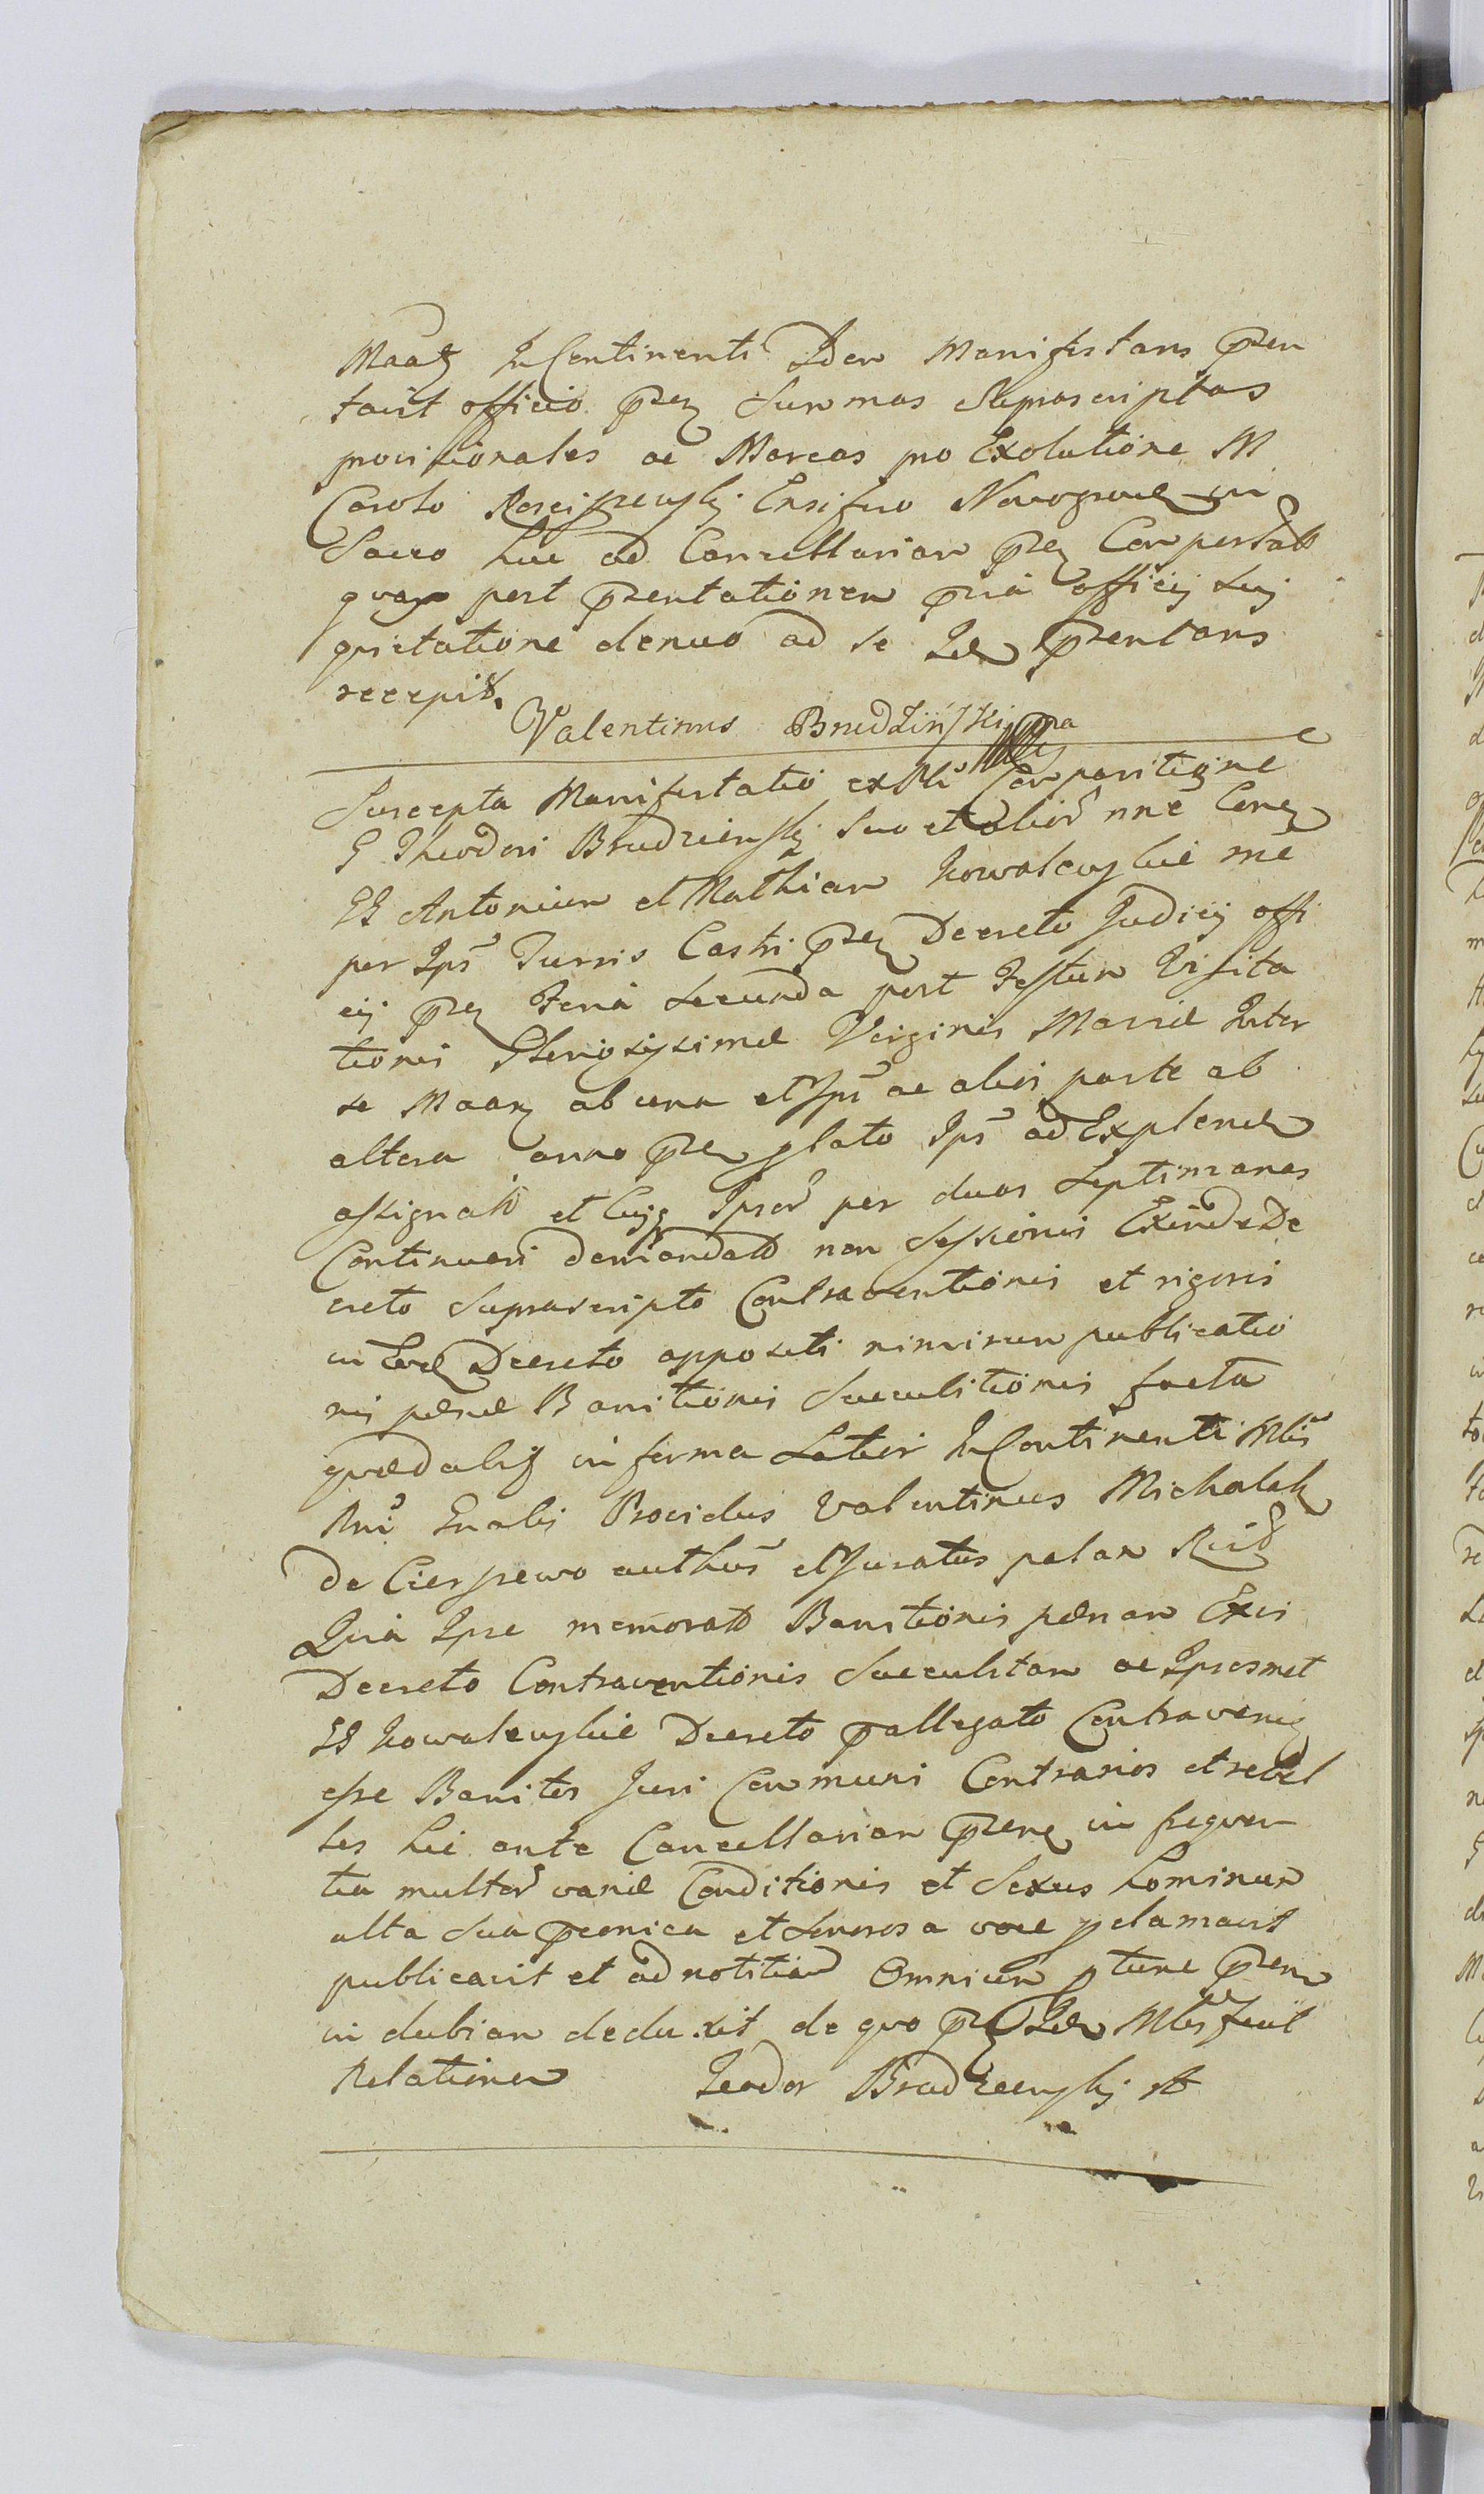 Maag InContinenti Idem Manifestans przen
tavit officio przn Summas Suprascriptas
provisionales ac Marcas pro Exolutione M
Carolo Ensifero Novogrod in
Sacco huc ad Cancellariam przn Comportatt
quas post przentationem pvia officij sui
quietatione denuo ad se Id przentans
recepit.
Valentinus Brudziński mpa
Suscepta Manifestatio ex Comparitione
G Theodori Brudzienskj suo et alior nne Con
GG Antonium et Mathiam Kowalewskie rne
per Ips Turris Castri przn Decreto Judicij offi
cij przn Feria Secunda post Festum Visita
tionis Gloriosissimæ Virginis Mariæ Inter
se Maan ab una et Ips ac alios parte ab
altera anno przn plato Ips ad Explend
assignatt et Cujq Ipsor per duas Septimanas
Continuari demandatt non Sessionis Exinde De
creto Suprascripto Contraventionis et rigoris
in Eod Decreto appositi nimirum publicatio
nis pœnæ Banitionis Succubitionis facta
quædalis in forma Latior InContinenti Mlis
Rni Gnalis Providus Valentinus Michalak
de Cierpiewo authus et Juratus palam Rec
Quia Ipse memoratt Banitionis pœnam Exvi
Decreto Contraventionis Succubitam ac Ipsosmet
GG Kowalewskie Decreto pallegato Contraven
esse Banitos Juri Communi Contrarios et rebel
les hic ante Cancellariam przen in frequen
tia multor variæ Conditionis et Sexus hominum
alta sua pconica et Sonorosa voce pclamavit
publicavit et ad notitiam Omnium ptunc przen
in dubiam deduxit de quo przn Id Mlis fecit
Relationem Teodor Brudzienskj m